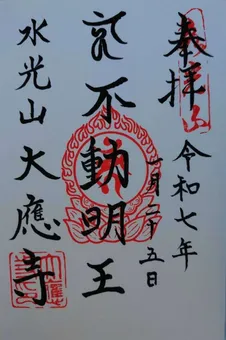 奉拝
令和七年
一月二十五日
不動明王
水光山大應寺